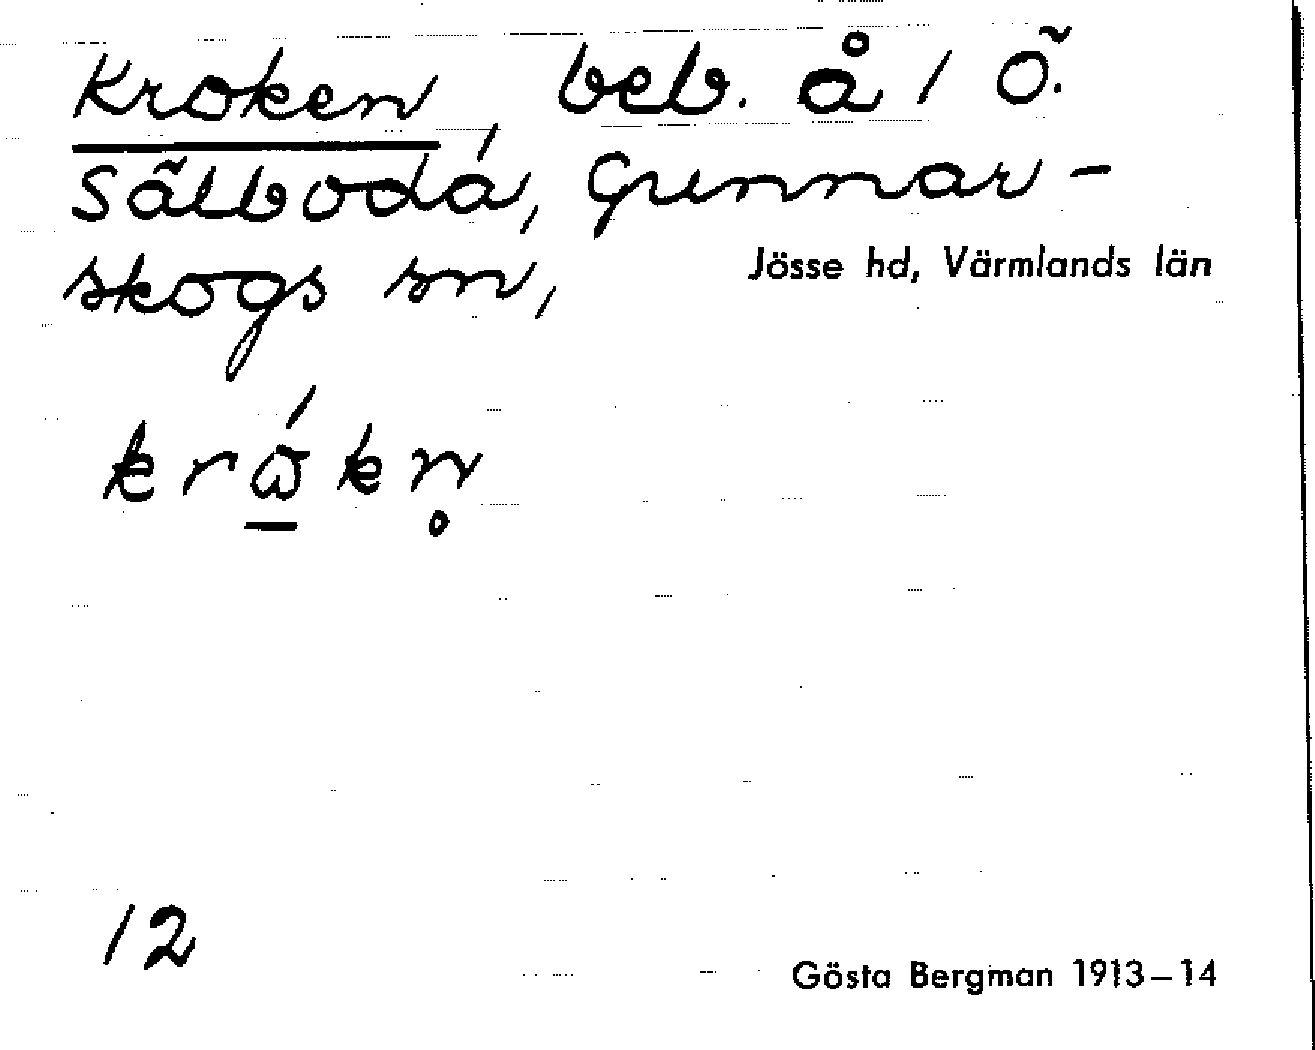 Kroken, beb. å 1 Ö.
Sälboda, Gunnar-
skogs sn,
Jösse hd, Värmlands län
12
Gösta Bergman 1913–14